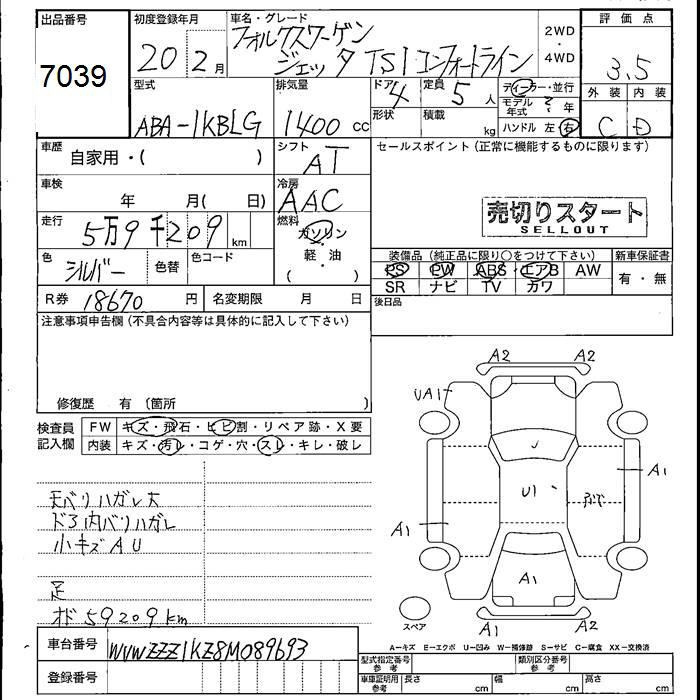 出品番号
7039
初度登録年月
20 2月
車名・グレード
フォルクスワーゲン
ジェッタ TSI コンフォートライン
2WD
・
4WD
評価点
3.5
外装 内装
C D
型式
ABA-1KBLG
排気量
1400 cc
ドア 4
形状
定員 5 人
積載 kg
ディーラー・並行
モデル年式 ? 年
ハンドル 左 右
車歴
自家用・( )
シフト
AT
セールスポイント(正常に機能するものに限ります)
車検
年 月( 日)
冷房
AAC
走行
5万9千209 km
燃料
ガソリン
・
軽・油
( )
売切りスタート
SELLOUT
色
シルバー
色替
色コード
装備品(純正品に限り○をつけて下さい)
PS PW ABS エアB AW
SR ナビ TV カワ
新車保証書
有・無
R券 18670 円
名変期限 月 日
後日品
注意事項申告欄(不具合内容等は具体的に記入して下さい)
修復歴 有(箇所 )
検査員
記入欄
FW キズ・飛石・ヒビ割・リペア跡・X要
内装 キズ・汚レ・コゲ・穴・スレ・キレ・破レ
天バリハガレ大
ドア内バリハガレ
小キズAU
足
オド59209km
A2 A2
UA1
U1
A1
A1
A1
A1 A2
スペア
A-キズ E-エクボ U-凹み W-補修跡 S-サビ C-腐食 XX-交換済
車台番号
WVWZZZ1KZ8M089693
登録番号
型式指定番号
参考
類別区分番号
参考
車庫証明用
参考
長さ cm
幅 cm
高さ cm